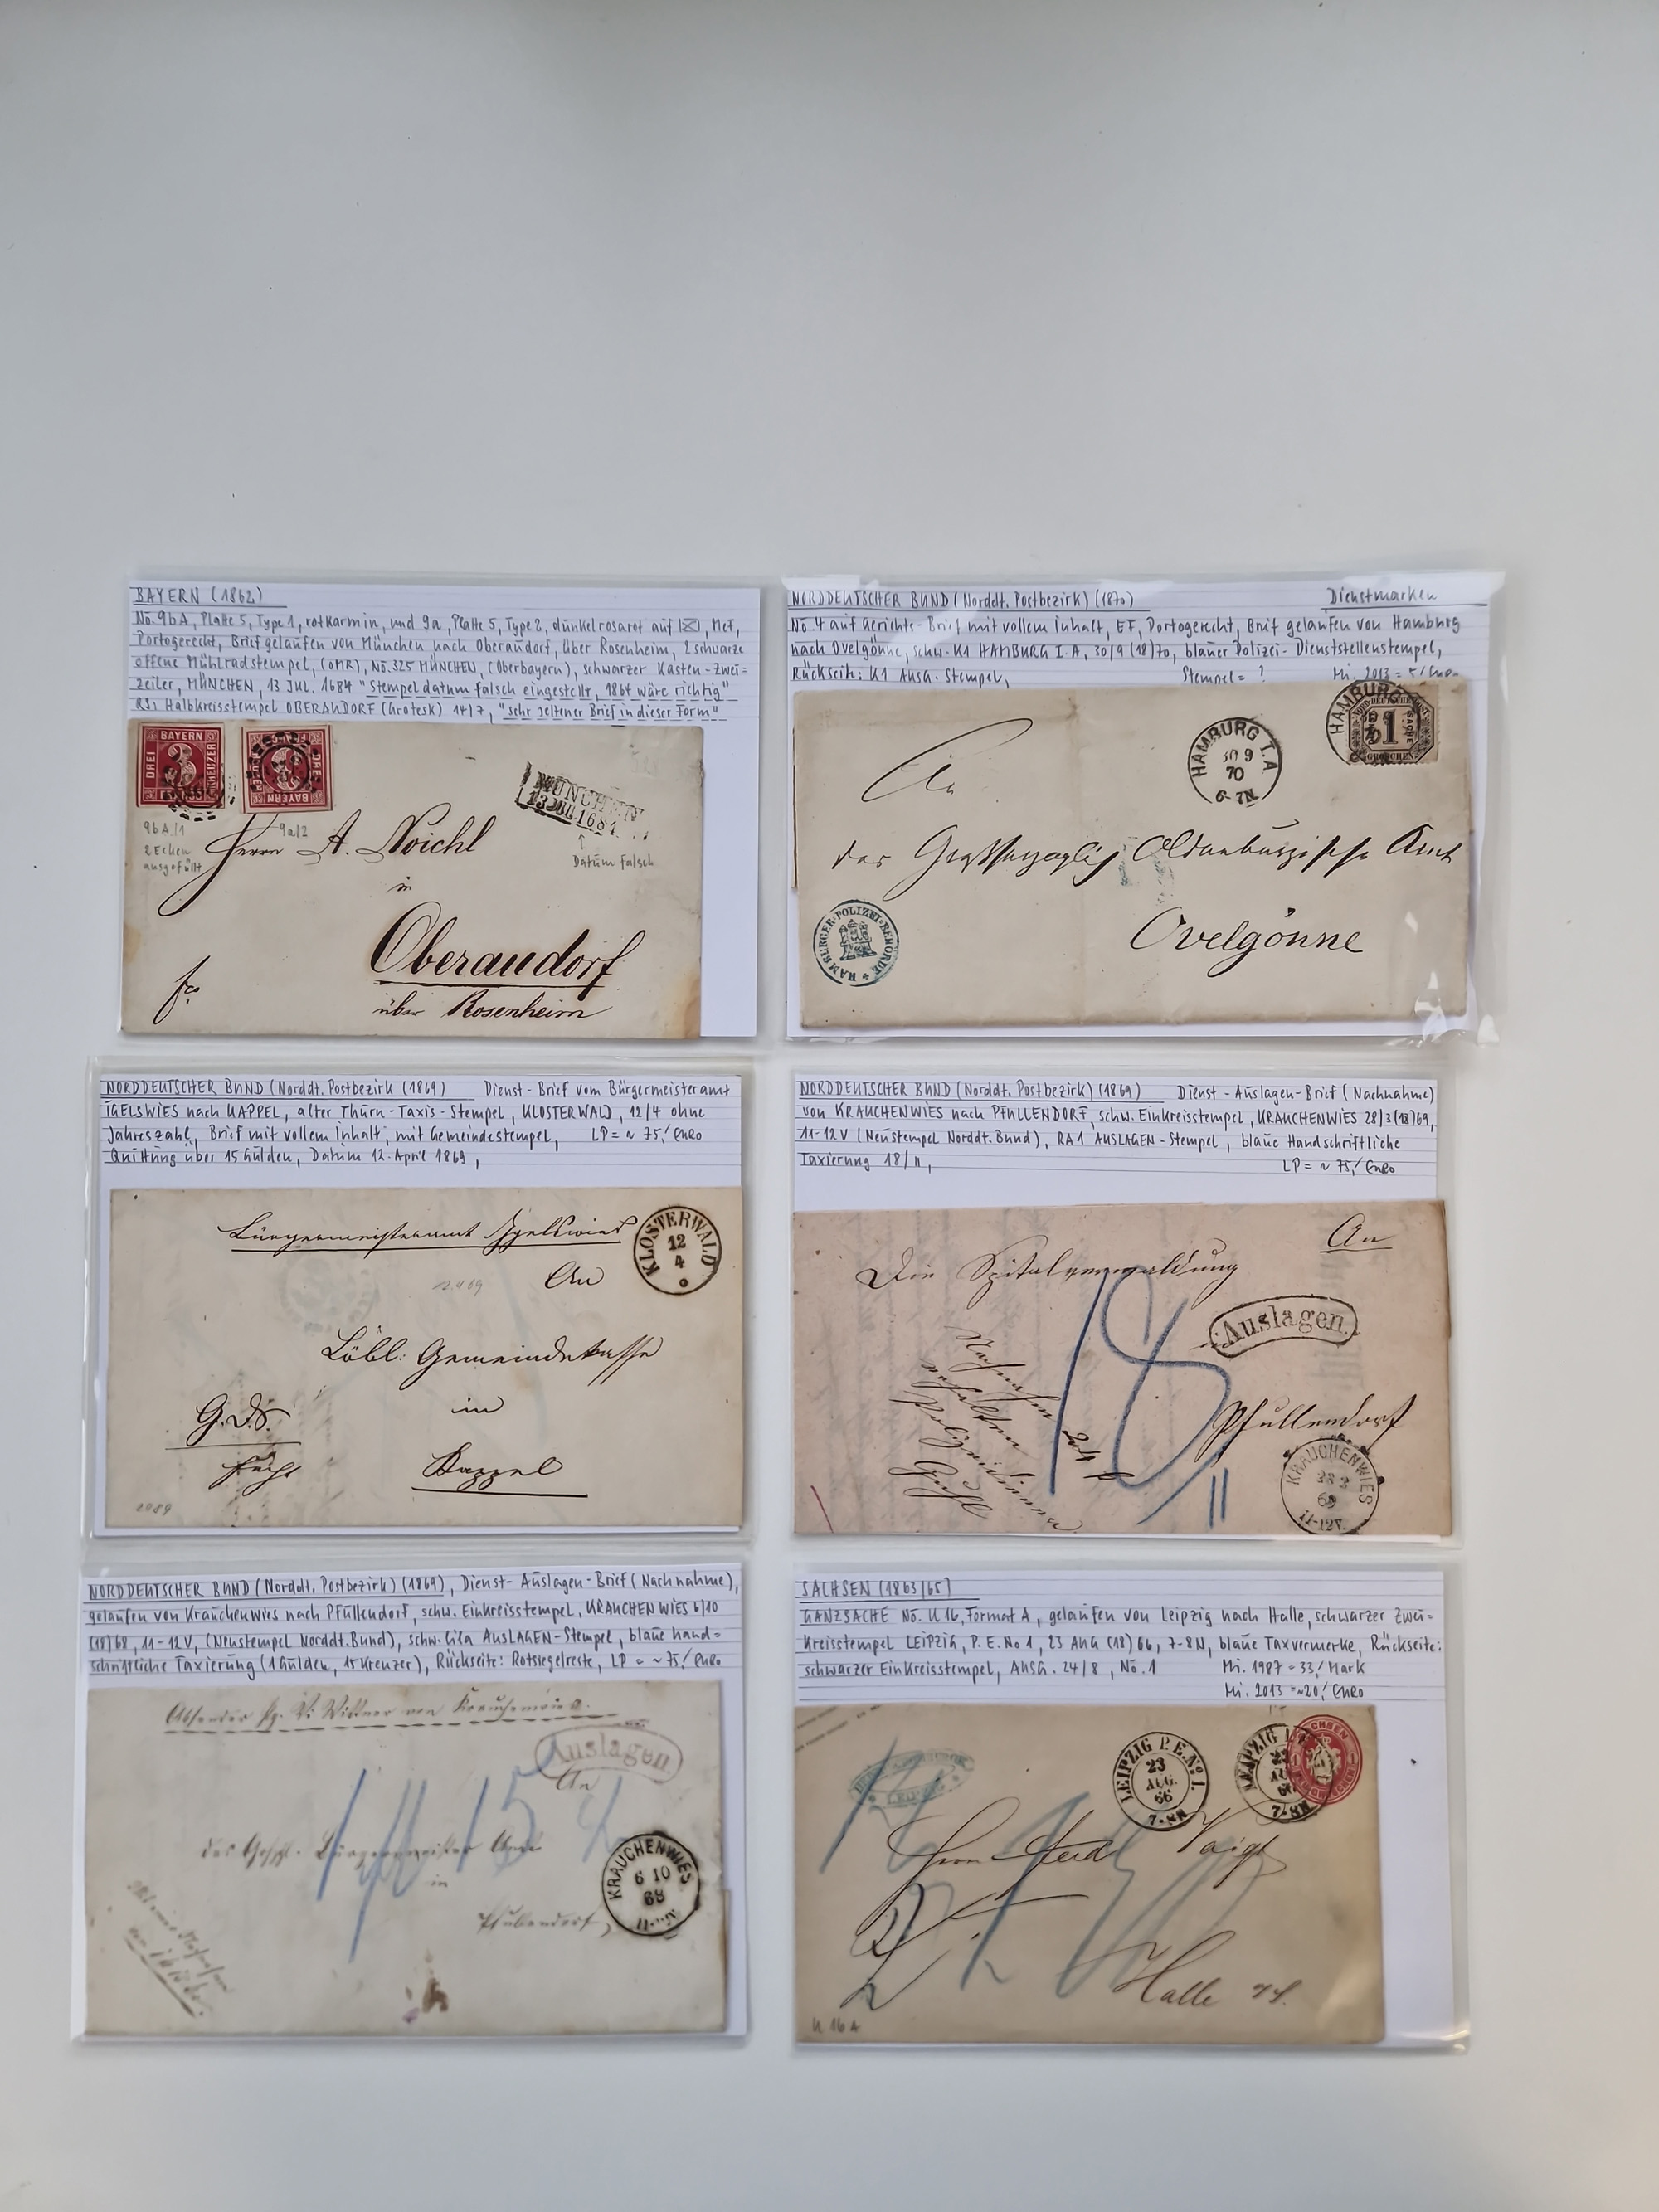 BAYERN (1862)
No. 9bA, Platte 5, Type 1, rotkarmin, und 9a, Platte 5, Type 2, dunkelrosarot auf ✉, MeF,
Portogerecht, Brief gelaufen von München nach Oberaudorf, über Rosenheim, 2 schwarze
offene Mühlradstempel, (OMR), No. 325 MÜNCHEN, (Oberbayern), schwarzer Kasten-Zwei=
zeiler, MÜNCHEN, 13 JUL. 1684 "Stempeldatum falsch eingestellt, 1864 wäre richtig"
RS: Halbkreisstempel OBERAUDORF (Grotesk) 14/7, "sehr seltener Brief in dieser Form"
BAYERN
DREI
3
KREUZER
BAYERN
DREI
MÜNCHEN
13 JUL 1684
9bA/1
2 Ecken
ausgefüllt
9a/2
Datum falsch
Herrn A. Noichl
in
Oberaudorf
über Rosenheim
fco
NORDDEUTSCHER BUND (Norddt. Postbezirk) (1870) Dienstmarken
No. 4 auf Gerichts-Brief mit vollem Inhalt, EF, Portogerecht, Brief gelaufen von Hamburg
nach Ovelgönne, schw. K1 HAMBURG I.A, 30/9 (18)70, blauer Polizei-Dienststellenstempel,
Rückseite: K1 AUSG. Stempel, Stempel = ? Mi. 2013 = 5,/ Euro
HAMBURG
1
HAMBURG I.A.
30 9
70
6-7N
An
das Großherzoglich Oldenburgische Amt
Ovelgönne
HAMBURGER POLIZEI-BEHÖRDE
NORDDEUTSCHER BUND (Norddt. Postbezirk (1869) Dienst-Brief vom Bürgermeisteramt
IGELSWIES nach KAPPEL, alter Thurn-Taxis-Stempel, KLOSTERWALD, 12/4 ohne
Jahreszahl, Brief mit vollem Inhalt, mit Gemeindestempel, LP = ~ 75,/ Euro
Quittung über 15 Gulden, Datum 12. April 1869,
Bürgermeisteramt Igelswies
KLOSTERWALD
12
4
An
Löbl: Gemeindekasse
G.D.S.
in
Kappel
NORDDEUTSCHER BUND (Norddt. Postbezirk) (1869) Dienst-Auslagen-Brief (Nachnahme)
von KRAUCHENWIES nach PFULLENDORF, schw. Einkreisstempel, KRAUCHENWIES 28/3 (18)69,
11-12 V (Neustempel Norddt. Bund), RA1 AUSLAGEN-Stempel, blaue Handschriftliche
Taxierung 18/11, LP = ~ 75,/ Euro
An
Die Spitalverwaldung
Auslagen.
18
11
Pfullendorf
KRAUCHENWIES
28 3
69
11-12V.
NORDDEUTSCHER BUND (Norddt. Postbezirk) (1869), Dienst-Auslagen-Brief (Nachnahme),
gelaufen von Krauchenwies nach Pfullendorf, schw. Einkreisstempel, KRAUCHENWIES 6/10
(18)68, 11-12 V, (Neustempel Norddt. Bund), schw. lila AUSLAGEN-Stempel, blaue hand=
schriftliche Taxierung (1 Gulden, 15 Kreuzer), Rückseite: Rotsiegelreste, LP = ~ 75,/ Euro
Auslagen.
An
in
Pfullendorf,
KRAUCHENWIES
6 10
68
SACHSEN (1863/65)
GANZSACHE No. U 16, Format A, gelaufen von Leipzig nach Halle, schwarzer Zwei=
kreisstempel LEIPZIG, P.E. No 1, 23 AUG (18)66, 7-8 N, blaue Taxvermerke, Rückseite:
schwarzer Einkreisstempel, AUSG. 24/8, No. 1 Mi. 1987 = 33,/ Mark
Mi. 2013 = ~20,/ Euro
LEIPZIG P.E. No 1.
23
AUG.
66
7-8N
LEIPZIG
7-8N
SACHSEN
LEIPZIG
Herrn Ferd Voigt
Halle a/S.
U 16 A